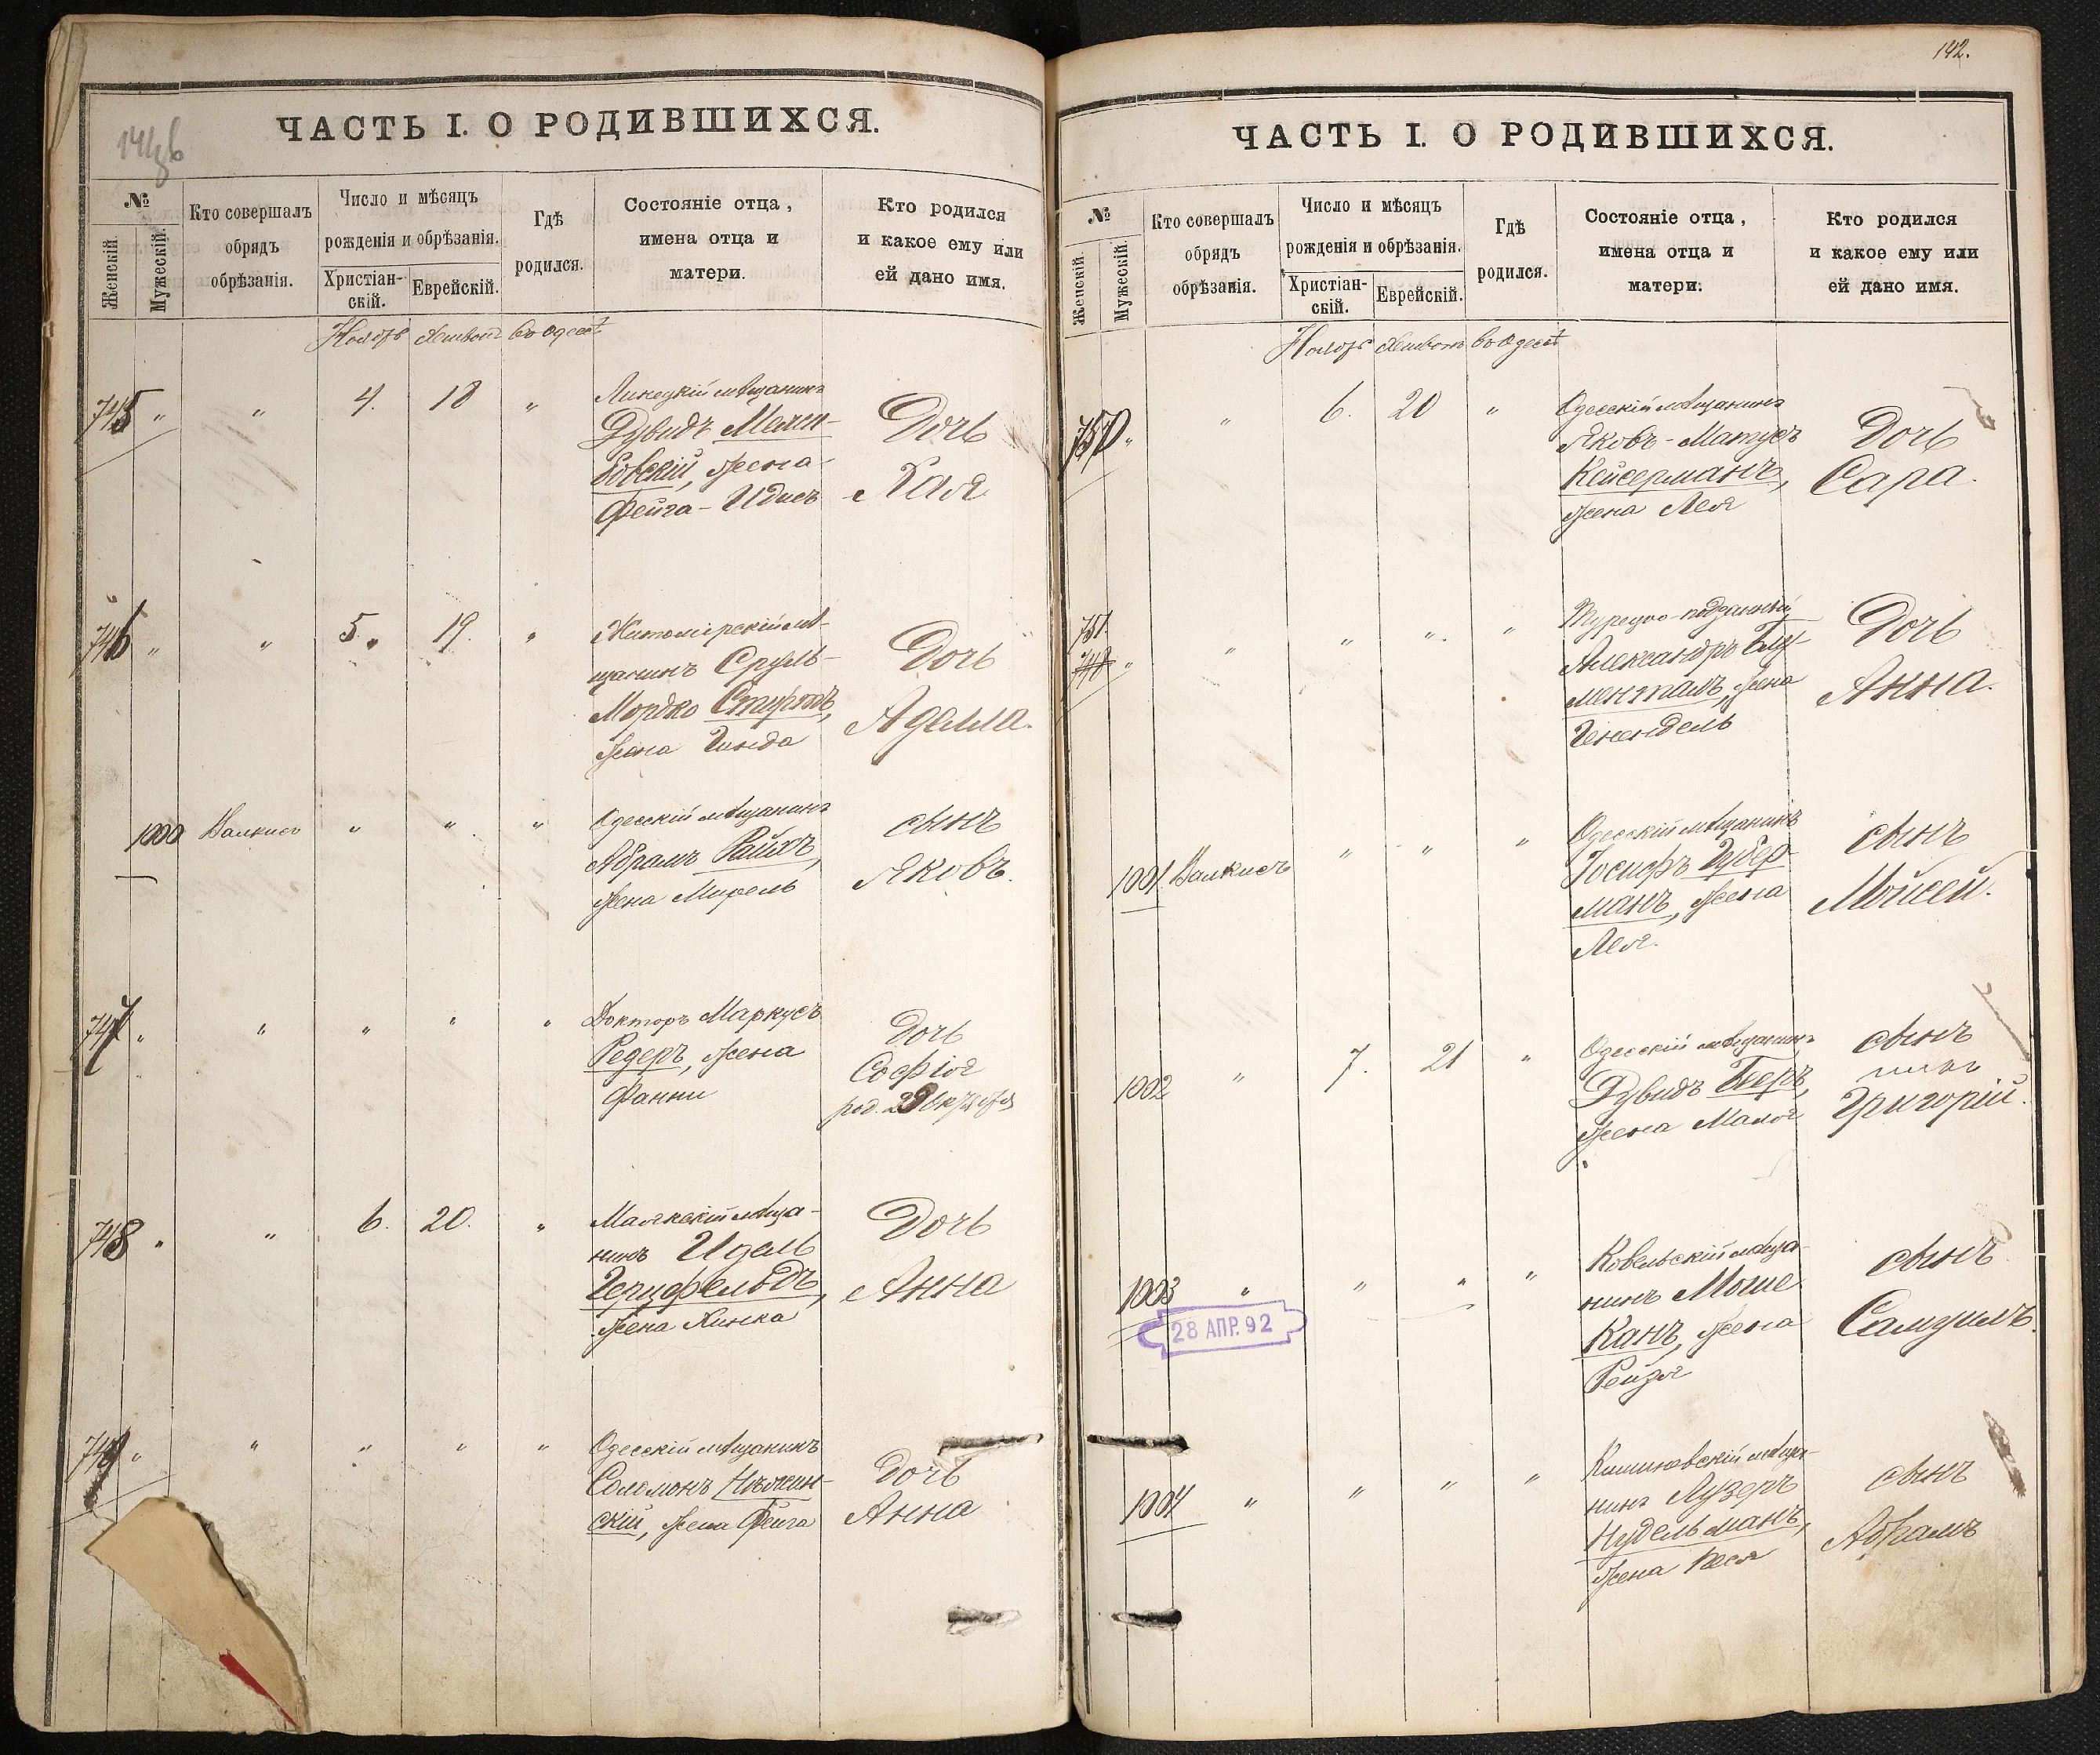 141об
ЧАСТЬ I. О РОДИВШИХСЯ.
№
Женскій.
Мужескій.
Кто совершалъ
обрядъ
обрѣзанія.
Число и мѣсяцъ
рожденія и обрѣзанія.
Христіан-
скій.
Еврейскій.
Гдѣ
родился.
Состояніе отца,
имена отца и
матери.
Кто родился
и какое ему или
ей дано имя.
Ноябрь Хешвонъ въ Одессѣ
745 " " 4. 18 "
Липецкій мѣщанинъ
Дувидъ
жена
Фейга-Идисъ
Дочь
Хая
746 " " 5. 19. "
Житомірскій мѣ-
щанинъ Сруль-
Мордко
жена Гинда
Дочь
Аделла.
1000 Валкисъ " " "
Одесскій мѣщанинъ
Абрамъ Райхъ,
жена Мирель
сынъ
Яковъ.
747 " " " " "
Докторъ Маркусъ
Редеръ, жена
Фанни
Дочь
Софія
род. 29
748 " " 6. 20. "
Маякскій мѣща-
нинъ Идель
Герцфельдъ,
жена Хинка
Дочь
Анна
749 " " " " "
Одесскій мѣщанинъ
Соломонъ Нѣжин-
скій, жена Фейга
Дочь
Анна
142.
ЧАСТЬ I. О РОДИВШИХСЯ.
№
Женскій.
Мужескій.
Кто совершалъ
обрядъ
обрѣзанія.
Число и мѣсяцъ
рожденія и обрѣзанія.
Христіан-
скій.
Еврейскій.
Гдѣ
родился.
Состояніе отца,
имена отца и
матери.
Кто родился
и какое ему или
ей дано имя.
Ноябрь Хешвонъ въ Одессѣ
750 " " 6. 20 "
Одесскій мѣщанинъ
Яковъ-Матусъ
Кейсерманъ,
жена Лея
Дочь
Сара.
751.
748 " " " " "
Турецко-подданный
Александръ Блу-
менталь, жена
Генендель
Дочь
Анна.
1001. Валкисъ " " "
Одесскій мѣщанинъ
Іосифъ Губер-
манъ, жена
Лея.
сынъ
Мойсей.
1002 " 7. 21 "
Одесскій мѣщанинъ
Дувидъ Беръ,
жена Маля
сынъ
Григорій.
1003 " " " "
28 АПР. 92
Ковельскій мѣща-
нинъ Моше
Канъ, жена
Рейзя
сынъ
Самуилъ.
1004 " " " "
Кишиневскій мѣща-
нинъ Лузеръ
Нудельманъ,
жена Песя
сынъ
Абрамъ